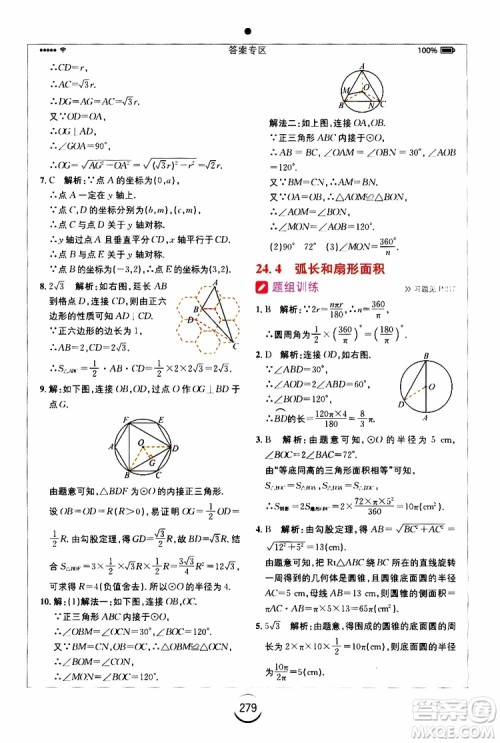 答案专区
100%
∴CD=r.
∴AC=√3 r.
∴DG=AG=AC=√3 r.
又∵OD=OA,
∴∠GOA=90°.
∴OG=√(AG²-OA²)=√((√3 r)²-r²)=√2 r.
7. C 解析:∵点A的坐标为(0,a),
∴点A一定在y轴上.
∵点C与点D的坐标分别为(b,m),(c,m),
∴点C与点D关于y轴对称.
∴y轴过点A且垂直平分CD.
∴点B与点E也关于y轴对称.
∵点B的坐标为(-3,2),∴点E的坐标为(3,2).
8. 2√3 解析:延长AB,
到格点D,连接CD,由正六
边形的性质可知,正六
边形的边长为2,
∴CD=2√3.
∴S△ABC=1/2 AB·CD=1/2×2×2√3=2√3.
9. 解:如下图,连接OB,OD,过点O作OG⊥BD于
点G.
由题意可知,△BDF为⊙O的内接正三角形.
设OB=OD=R(R>0),∴∠OBG=30°.
∴OG=1/2 R.∴BG=√3/2 R.∴BD=√3 R.
可求得R=4(负值舍去).
因此,⊙O的半径为4 cm.
10. 解:(1)解法一:如下图,连接OB,OC.
∵正三角形ABC内接于⊙O,
∴∠OBM=∠OCN=30°,
∠BOC=120°.
又∵BM=CN,OB=OC,
∴△OBM≌△OCN.
∴∠BOM=∠CON.
∴∠MON=∠BOC=120°.
解法二:如上图,连接OA,OB.
∵正三角形ABC内接于⊙O,
∴AB=BC,∠OAM=∠OBN=30°,∠AOB=
120°.
又∵BM=CN,∴AM=BN.
又∵OA=OB,
∴△AOM≌△BON.∴∠AOM=∠BON.
∴∠MON=∠AOB=120°.
(2)90° 72° (3)∠MON=360°/n.
24.4 弧长和扇形面积
题组训练
1. B 解析:∵2r=nπr/180,∴n°=(360/π)°.
∴圆周角为1/2×(360/π)°=(180/π)°.
2. D 解析:连接OD,如右图.
∵∠ABD=30°,
∴∠AOD=2∠ABD=60°.
∴∠BOD=120°.
∴BD的长=120π×4/180=8π/3.
3. B 解析:由题意可知,⊙O的半径为5 cm,
∠BOC=∠AOB=72°.
由“等底同高的三角形面积相等”可知,
∴S阴影=2S扇形=2×72×π×5²/360=10π(cm²).
4. B 解析:由勾股定理可得,AB=√(BC²+AC²)=
√(12²+5²)=13.
由题意可知,把Rt△ABC绕BC所在的直线旋转
一周得到的几何体是圆锥,圆锥的底面的半径
是5,
∴圆锥的侧面积=1/2×2π×5×13=65π.
5. 5√3 解析:由题意可得,围成的圆锥底面圆的
周长为1/2×20π=10π(cm).所以圆锥的底面半
径为10π/2π=5(cm).
279